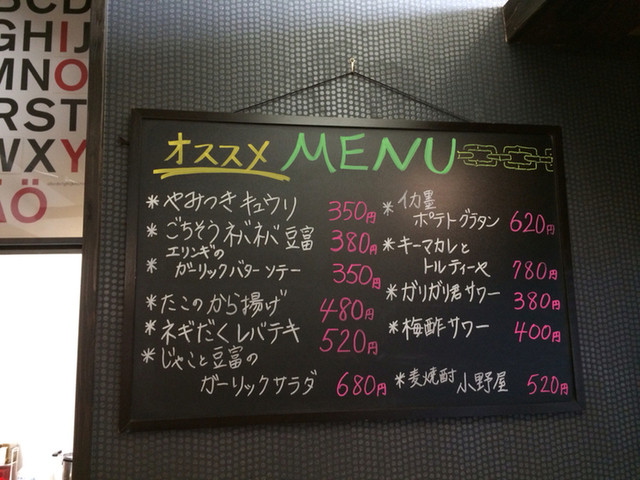 BCD
GHIJ
MNO
RST
WXY
ÄÖ
オススメ MENU
*やみつきキュウリ 350円
*ごちそうネバネバ豆冨 380円
*エリンギの
ガーリックバターソテー 350円
*たこのから揚げ 480円
*ネギだくレバテキ 520円
*じゃこと豆冨の
ガーリックサラダ 680円
*イカ墨
ポテトグラタン 620円
*キーマカレと
トルティーヤ 780円
*ガリガリ君サワー 380円
*梅酢サワー 400円
*麦焼酎 小野屋 520円